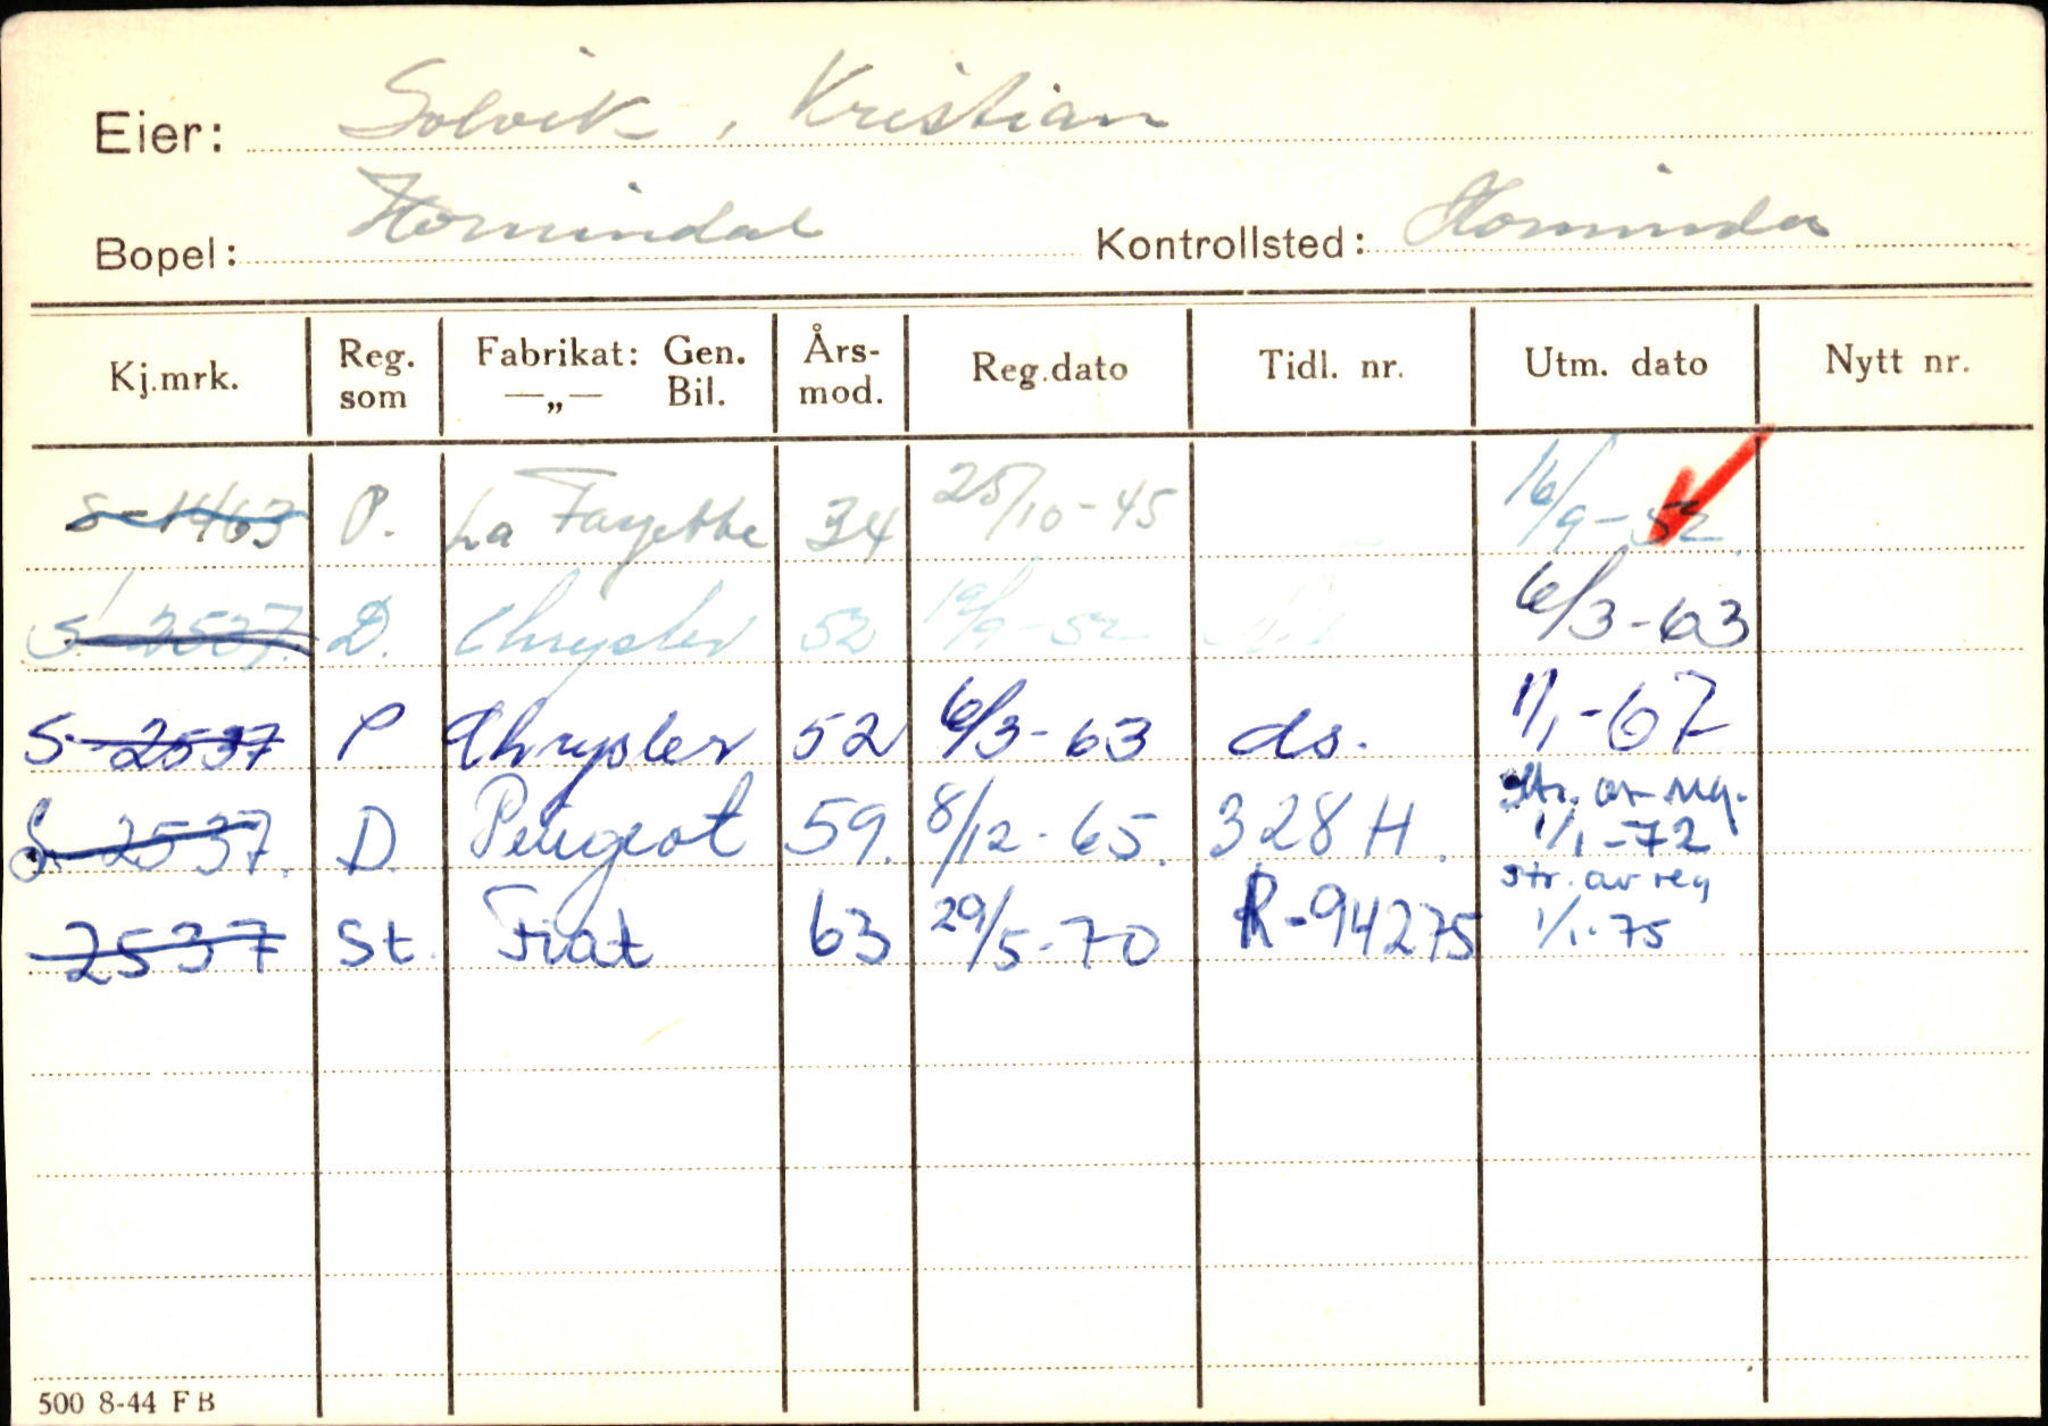 Eier: Solvik, Kristian
Bopel: Hornindal Kontrollsted: Hornindal
Kj.mrk. Reg. som Fabrikat: Gen. —„— Bil. Års-mod. Reg.dato Tidl. nr. Utm. dato Nytt nr.
S-1463 P. La Fayette 34 25/10-45 16/9-52
S-2537. D. Chrysler 52 19/9-52 6/3-63
S-2537 P Chrysler 52 6/3-63 ds. 1/1-67
S-2537. D. Peugeot 59. 8/12-65. 328 H. str. av reg. 1/1-72
2537 St. Fiat 63 29/5-70 R-94275 str. av reg 1/1-75
500 8-44 F B